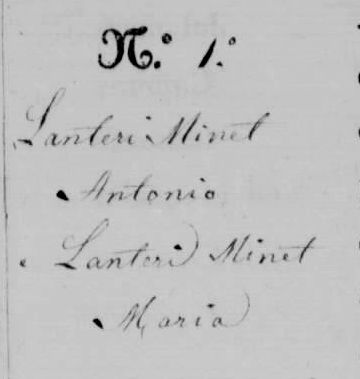 N.º 1.º
Lanteri Minet
Antonio
e Lanteri Minet
Maria